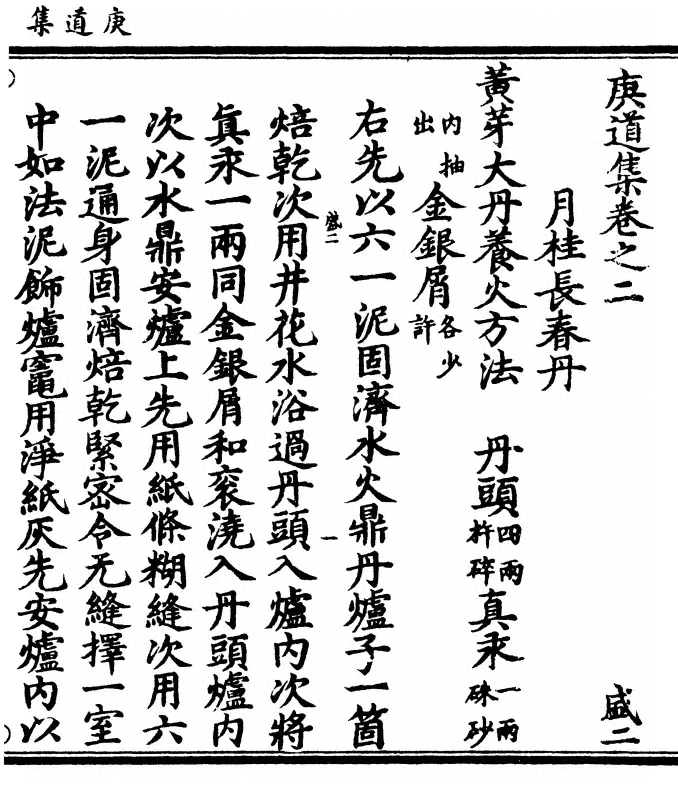 庚道集
庚道集卷之二 盛二
月桂長春丹
黃芽大丹養火方法 丹頭四兩杵碎真汞一兩硃砂
內抽出金銀屑各少許
右先以六一泥固濟水火鼎丹爐子一箇
盛二 一
焙乾次用井花水浴過丹頭入爐內次將
眞汞一兩同金銀屑和衮澆入丹頭爐內
次以水鼎安爐上先用紙條糊縫次用六
一泥通身固濟焙乾緊宻令无縫擇一室
中如法泥飾爐竈用淨紙灰先安爐內以